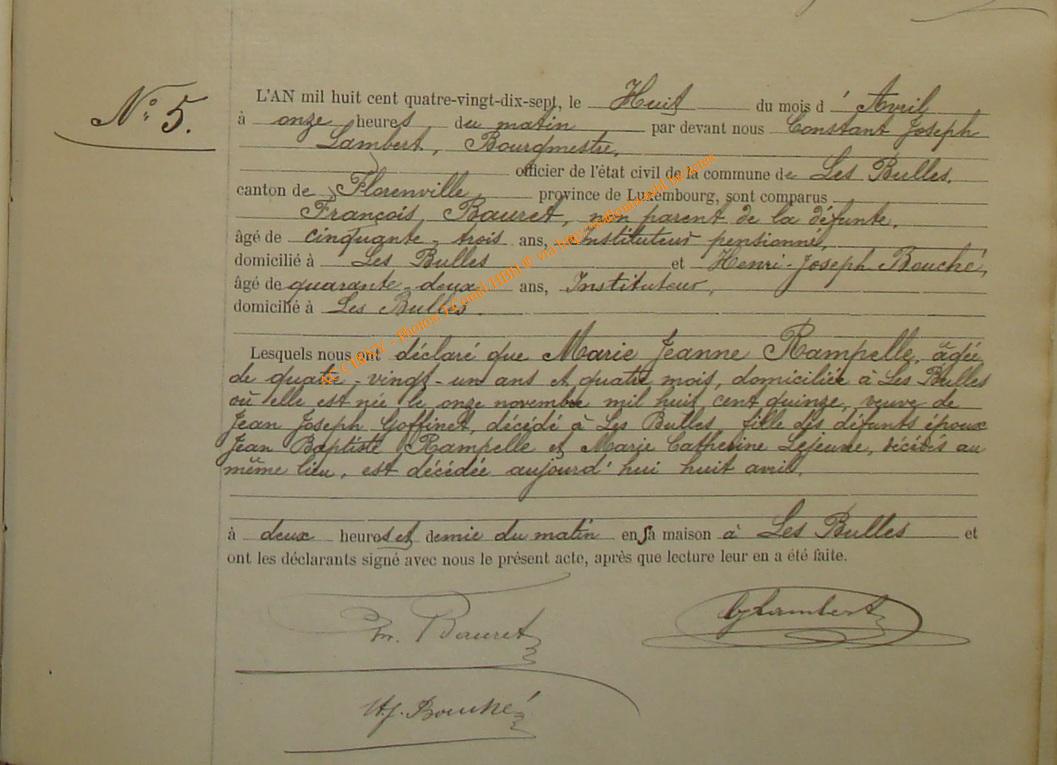 N° 5.
L'AN mil huit cent quatre-vingt-dix-sept, le Huit du mois d' Avril
à onze heures du matin par devant nous Constant Joseph
Lambert, Bourgmestre,
officier de l'état civil de la commune de Les Bulles,
canton de Florenville, province de Luxembourg, sont comparus
François Bauret, non parent de la défunte,
âgé de cinquante-trois ans, Instituteur pensionné,
domicilié à Les Bulles et Henri-Joseph Bouché,
âgé de quarante-deux ans, Instituteur,
domicilié à Les Bulles.
Lesquels nous ont déclaré que Marie Jeanne Rampelle, âgée
de quatre-vingt-un ans et quatre mois, domiciliée à Les Bulles
où elle est née le onze novembre mil huit cent quinze, veuve de
Jean Joseph Goffinet, décédé à Les Bulles, fille des défunts époux
Jean Baptiste Rampelle et Marie Catherine Lejeune, décédés au
même lieu, est décédée aujourd'hui huit avril,
à deux heures et demie du matin en sa maison à Les Bulles et
ont les déclarants signé avec nous le présent acte, après que lecture leur en a été faite.
Bauret
Lambert
H.J. Bouché